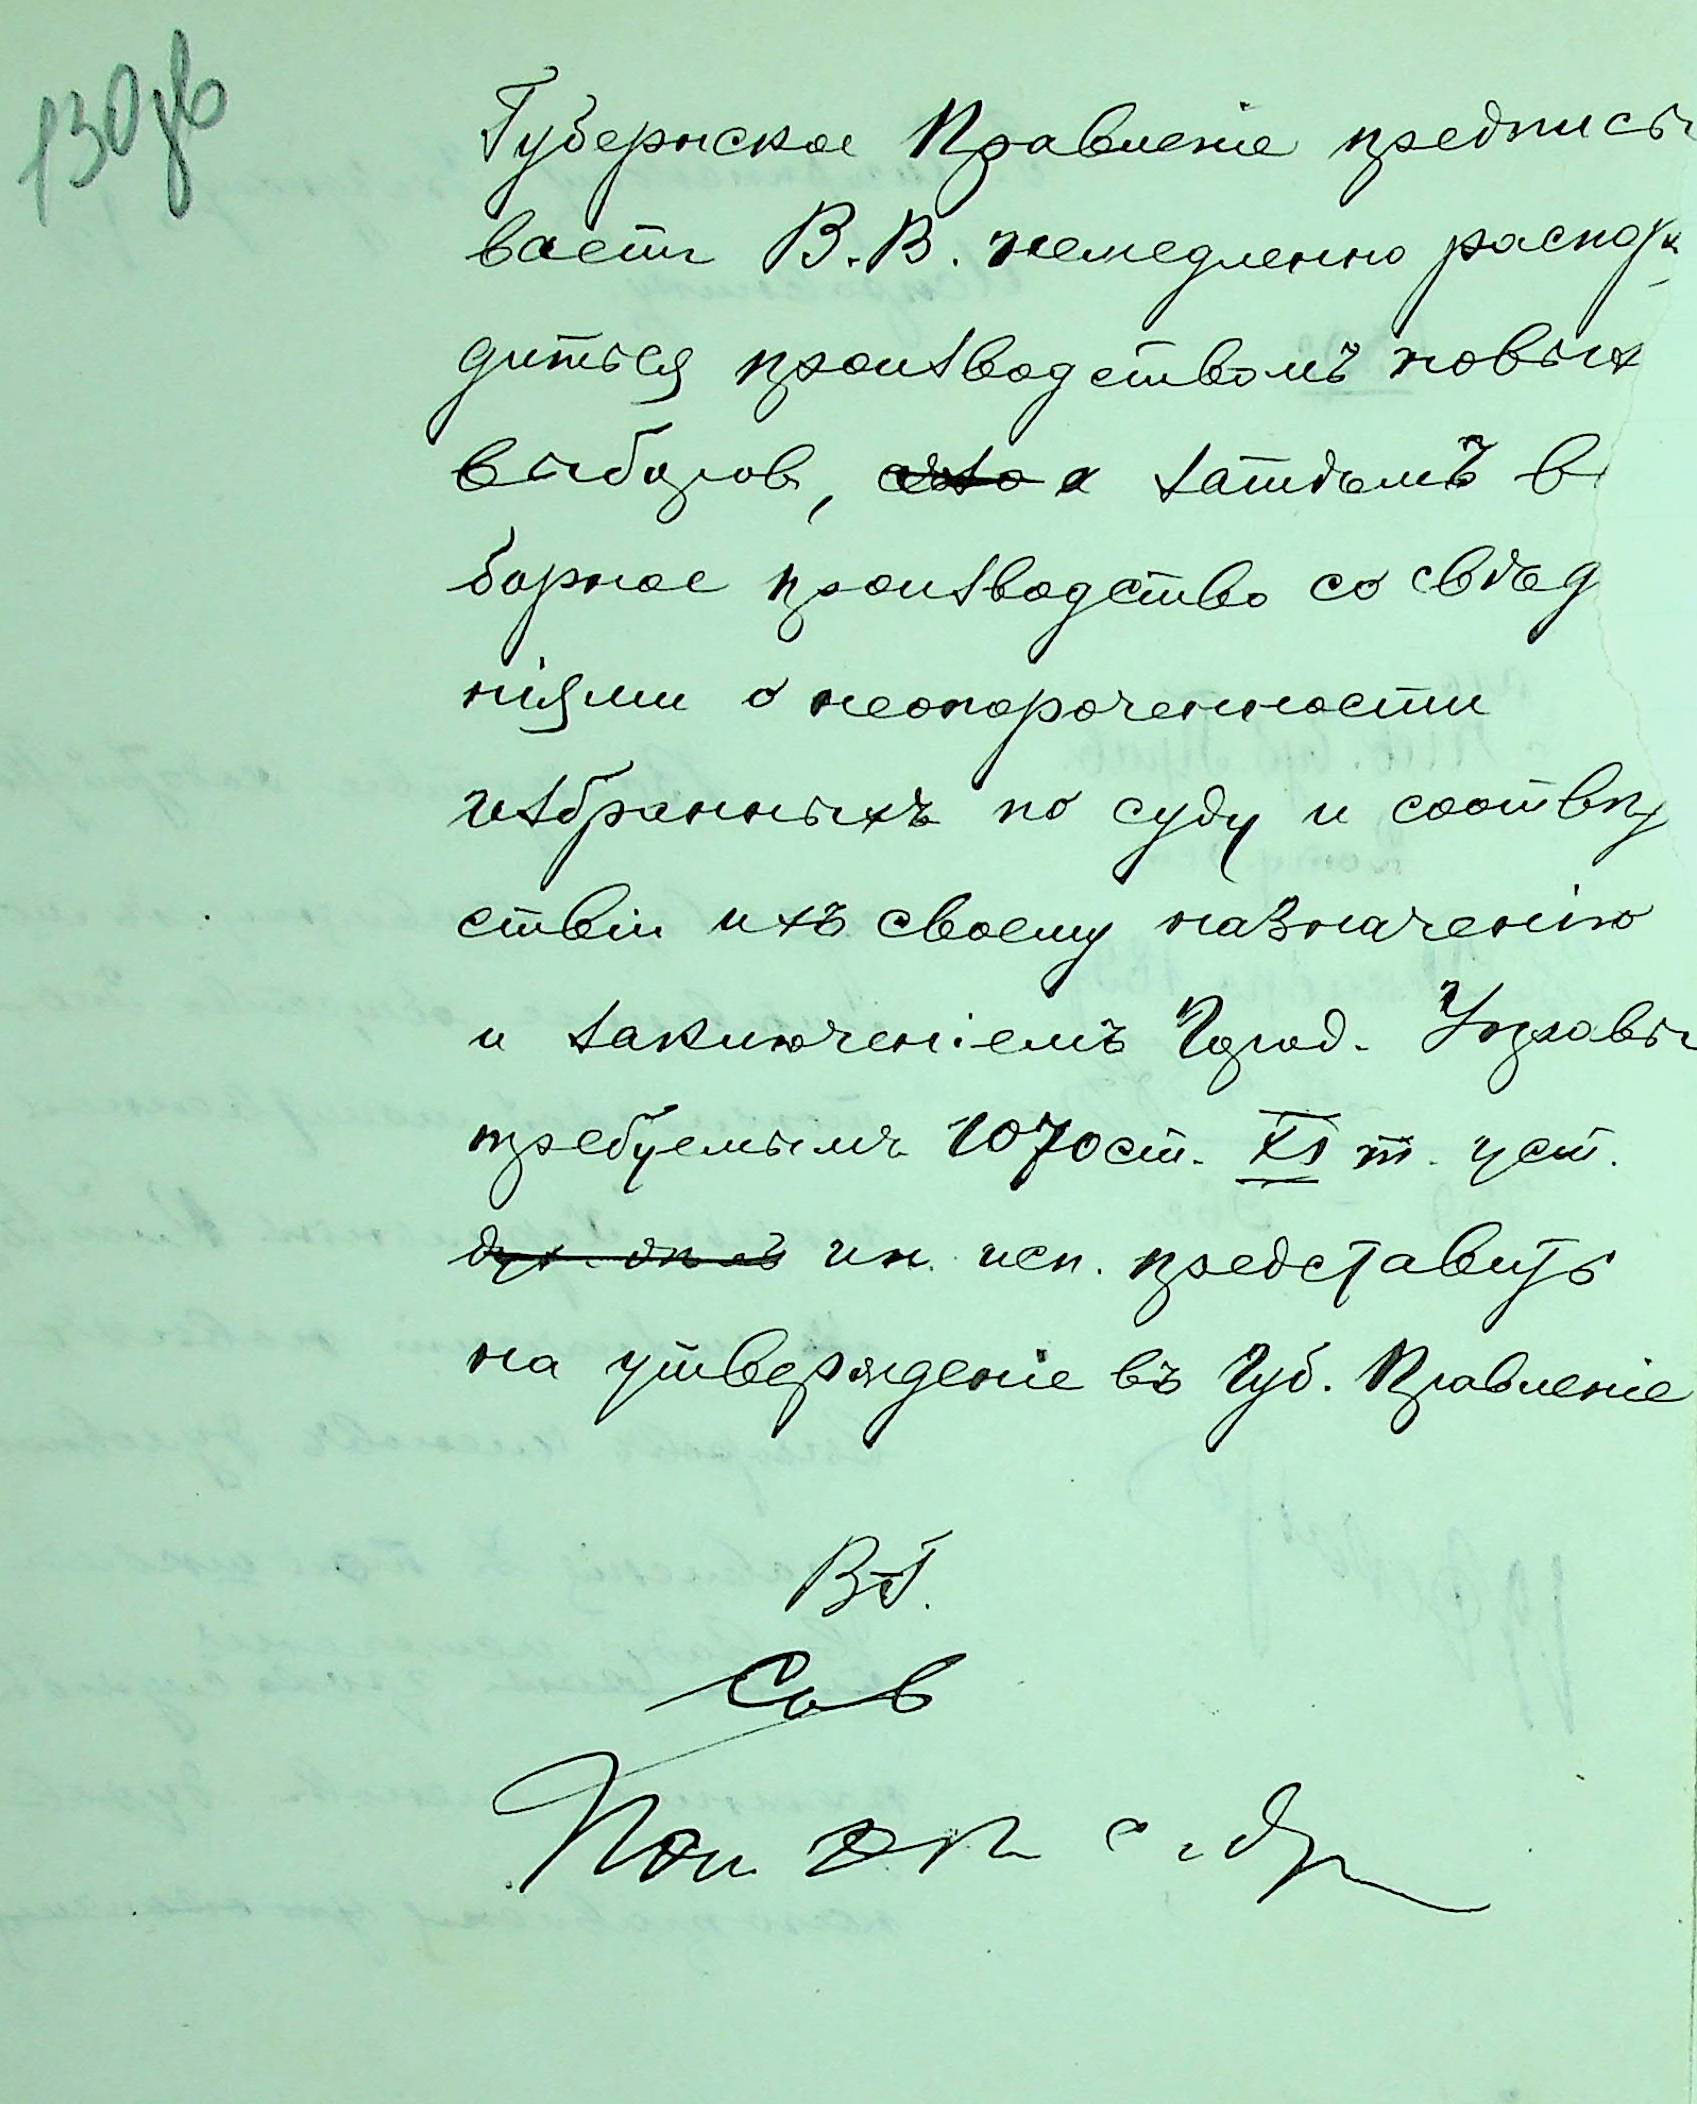 130
Губернское Правленіе предписы
ваетъ В.В. немедленно распоря
диться производствомъ новых
выборов, а затѣмъ в
борное производство со свѣд
ніями о неопороченности
избранныхъ по суду и соотвѣт
ствіи ихъ своему назначенію
и заключеніемъ Город. Управы
требуемымъ 1070 ст. XI т. уст.
ин. исп. представить
на утвержденіе въ Губ. Правленіе
В.Г.
Сов